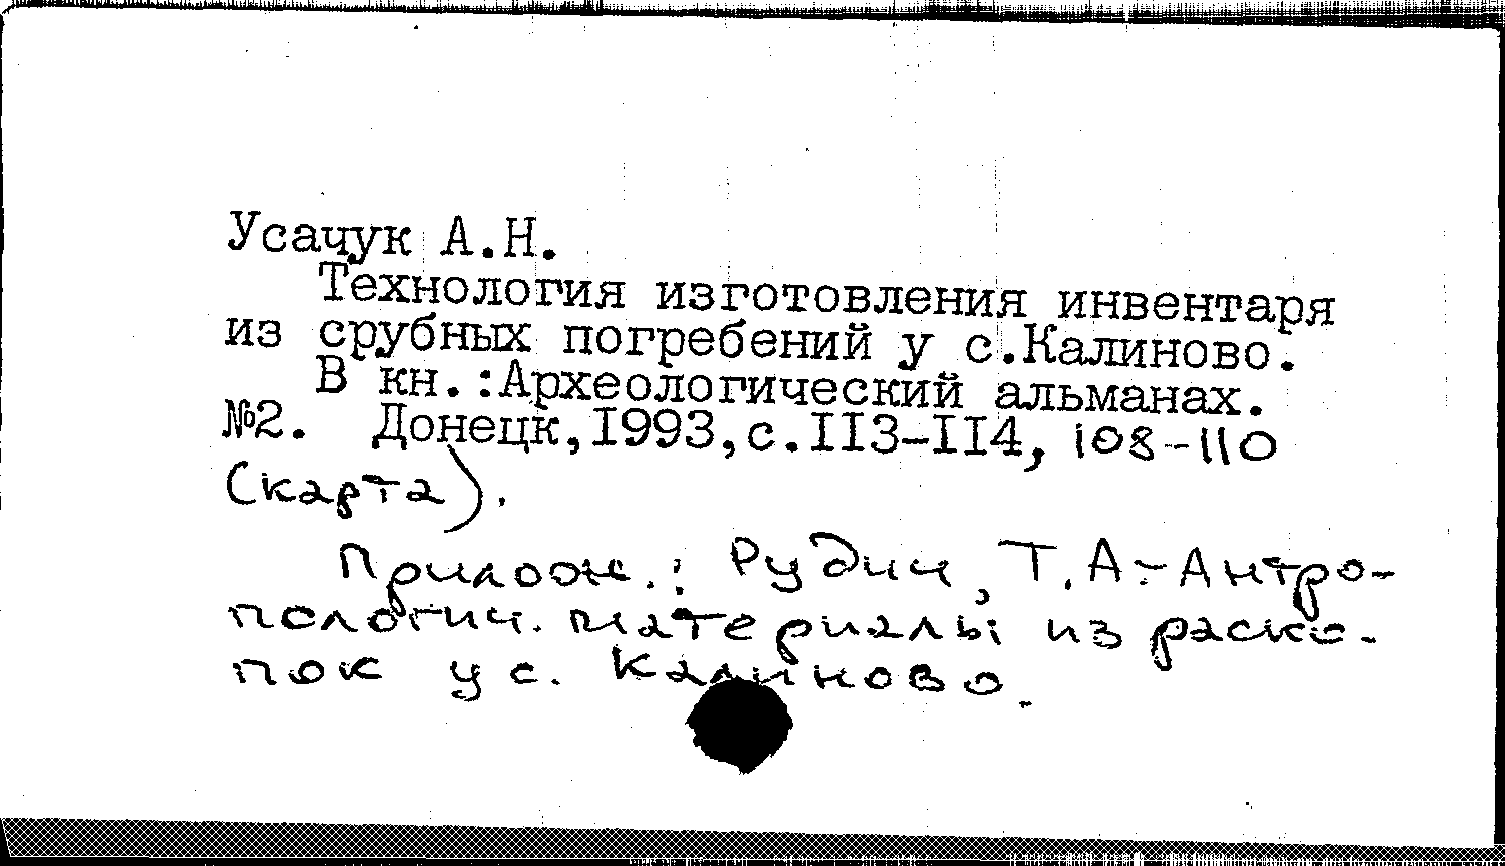 Усачук А.Н.
Технология изготовления инвентаря
из срубных погребений у с.Калиново.
В кн.:Археологический альманах.
№2. Донецк,I993,с.II3-II4, 108-110
(карта).
Прилож.: Рудич, Т.А.-Антро-
пологич. материалы из раско-
пок у с. Калиново.